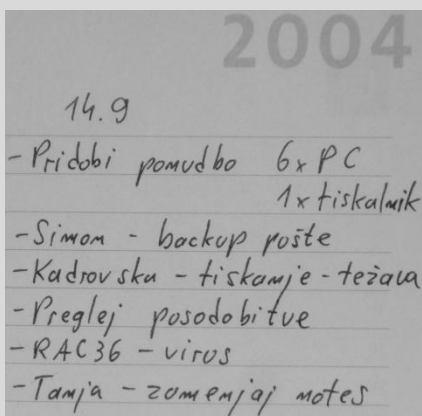 2004
14.9
- Pridobi ponudbo 6x PC
1x tiskalnik
- Simon - backup pošte
- Kadrovska - tiskanje - težava
- Preglej posodobitve
- RAC36 - virus
- Tanja - zamenjaj notes